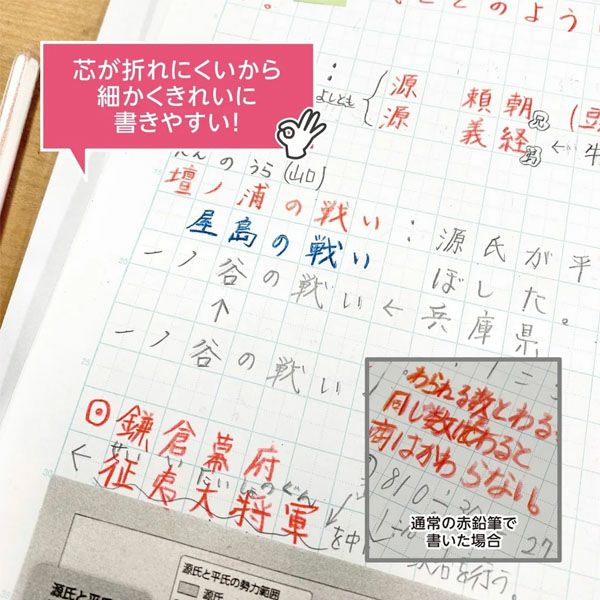 芯が折れにくいから
細かくきれいに
書きやすい!
のよう
よしとも
源 頼朝 兄
源 義経 弟 ←
だんのうら(山口)
壇ノ浦の戦い : 源氏が平
屋島の戦い ぼした。
一ノ谷の戦い ← 兵庫県
↑
一ノ谷の戦い
⊙鎌倉幕府
← せいいたいしょうぐん
征夷大将軍
を中
源氏と平氏の勢力範囲
源氏
源氏と平氏の
われる数とわる
同し数でわると
商はかわらない。
810÷
27
を行う。
通常の赤鉛筆で
書いた場合